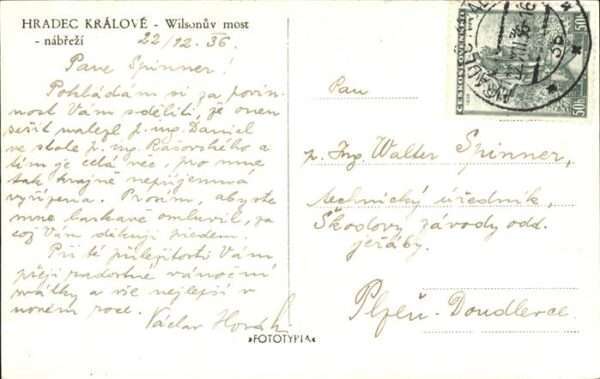 HRADEC KRÁLOVÉ - Wilsonův most
- nábřeží 22/12. 36.
Pane Spinner!
Pokládám si za povin-
nost Vám sděliti, že onen
sešit nalezl p. ing. Daniel
ve stole p. ing. Rašovského a
tím je celá věc, pro mne
tak krajně nepříjemná
vyřízena. Prosím, abyste
mne laskavě omluvil, za
což Vám děkuji předem.
Při té příležitosti Vám
přeji radostné vánoční
svátky a vše nejlepší v
novém roce.
Václav Horák
»FOTOTYPIA«
ČESKOSLOVENSKO
50
50
Pan
p. Ing. Walter Spinner,
technický úředník,
Škodovy závody odd.
jeřáby.
Plzeň - Doudlevce